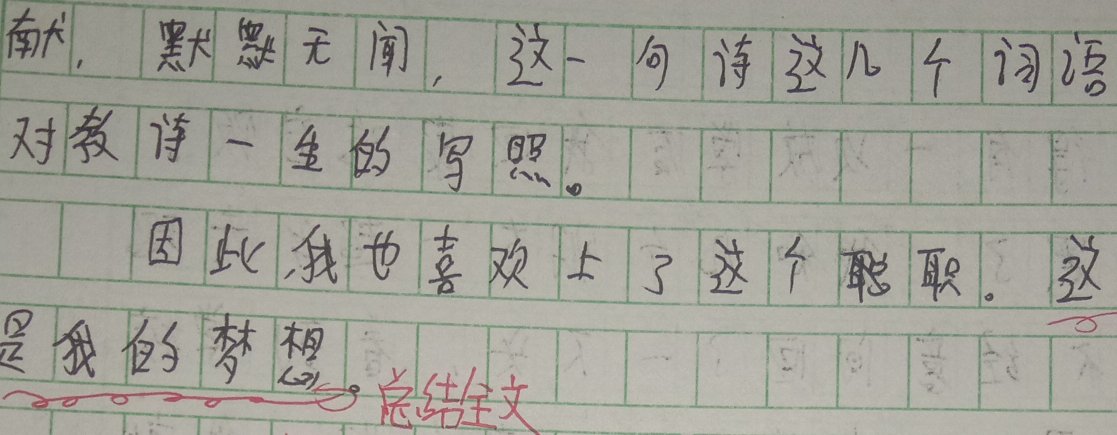 献，默默无闻，这一句诗这几个词语
对教诗一生的写照。
因此，我也喜欢上了这个聪职。这
是我的梦想。
总结全文